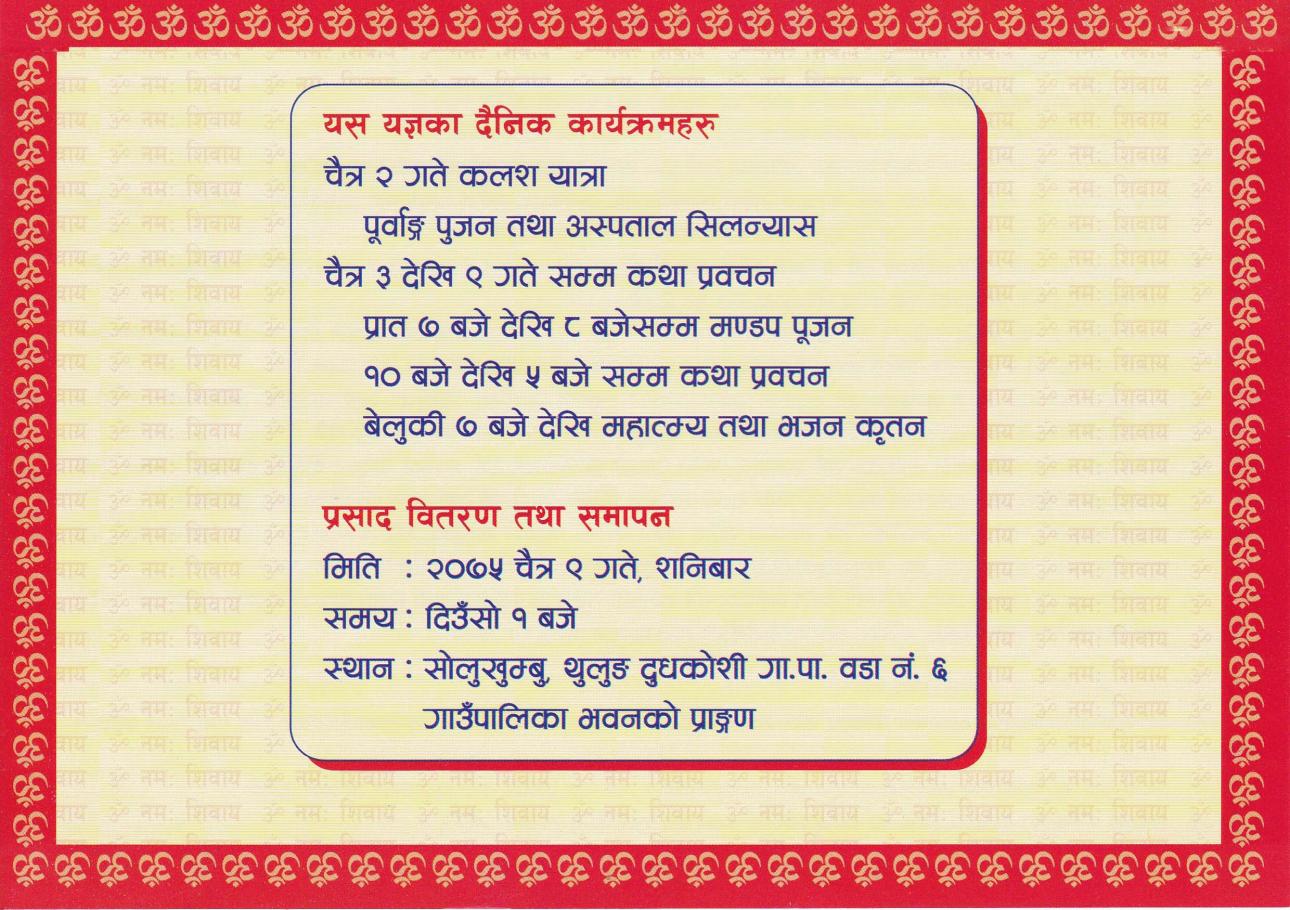 यस यज्ञका दैनिक कार्यक्रमहरु
चैत्र २ गते कलश यात्रा
पूर्वाङ्ग पुजन तथा अस्पताल सिलन्यास
चैत्र ३ देखि ९ गते सम्म कथा प्रवचन
प्रात ७ बजे देखि ८ बजेसम्म मण्डप पूजन
१० बजे देखि ५ बजे सम्म कथा प्रवचन
बेलुकी ७ बजे देखि महात्म्य तथा भजन कृतन
प्रसाद वितरण तथा समापन
मिति : २०७५ चैत्र ९ गते, शनिबार
समय : दिउँसो १ बजे
स्थान : सोलुखुम्बु, थुलुङ दुधकोशी गा.पा. वडा नं. ६
गाउँपालिका भवनको प्राङ्गण